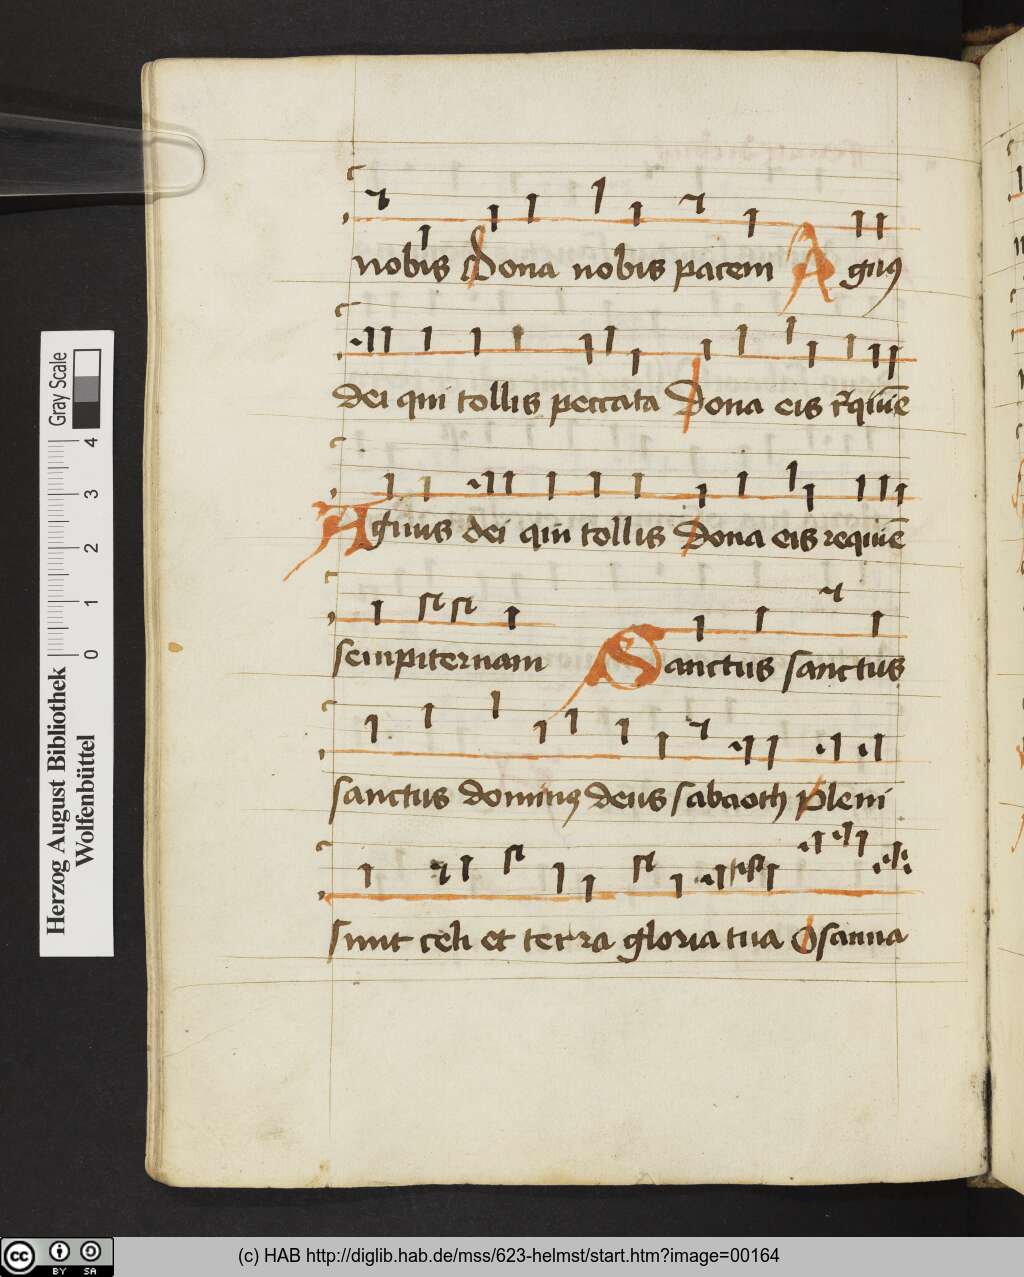 nobis Dona nobis pacem Agnus
dei qui tollis peccata Dona eis requiē
Agnus dei qui tollis Dona eis requiē
sempiternam Sanctus sanctus
sanctus dominus deus sabaoth Pleni
sunt celi et terra gloria tua Osanna
Gray Scale
4 3 2 1 0
Herzog August Bibliothek
Wolfenbüttel
cc BY SA
(c) HAB http://diglib.hab.de/mss/623-helmst/start.htm?image=00164